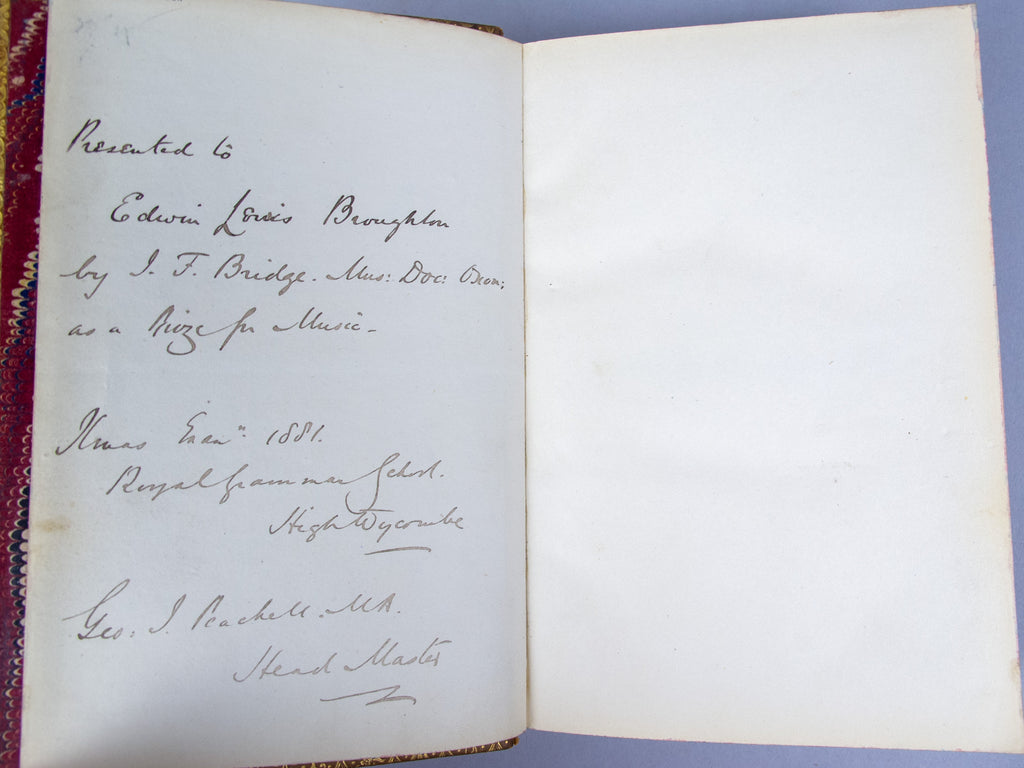 Presented to
Edwin Lewis Broughton
by J. F. Bridge. Mus: Doc: Oxon:
as a Prize for Music -
Xmas Exan: 1881.
Royal Grammar School.
High Wycombe
Geo: J. Peachell. MA.
Head Master